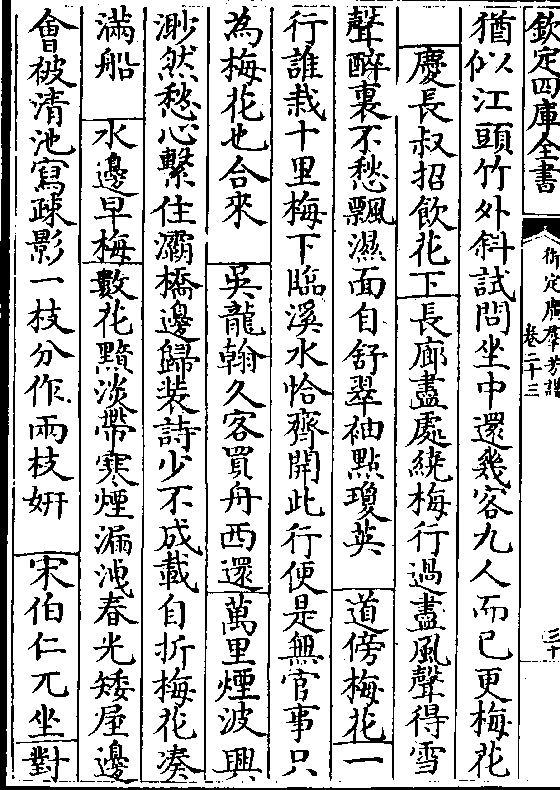 欽定四庫全書
御定廣羣芳譜
卷二十三
三十
猶似江頭竹外斜試問坐中還幾客九人而已更梅花
慶長叔招飲花下長廊盡處繞梅行過盡風聲得雪
聲醉裏不愁飄濕面自舒翠袖點瓊英 道傍梅花一
行誰栽十里梅下臨溪水恰齊開此行便是無官事只
為梅花也合來 吳龍翰久客買舟西還萬里煙波興
渺然愁心繫住灞橋邊歸装詩少不成載自折梅花凑
滿船 水邊早梅數花黯淡帶寒煙漏洩春光矮屋邊
會被清池寫疎影一枝分作兩枝妍 宋伯仁兀坐對